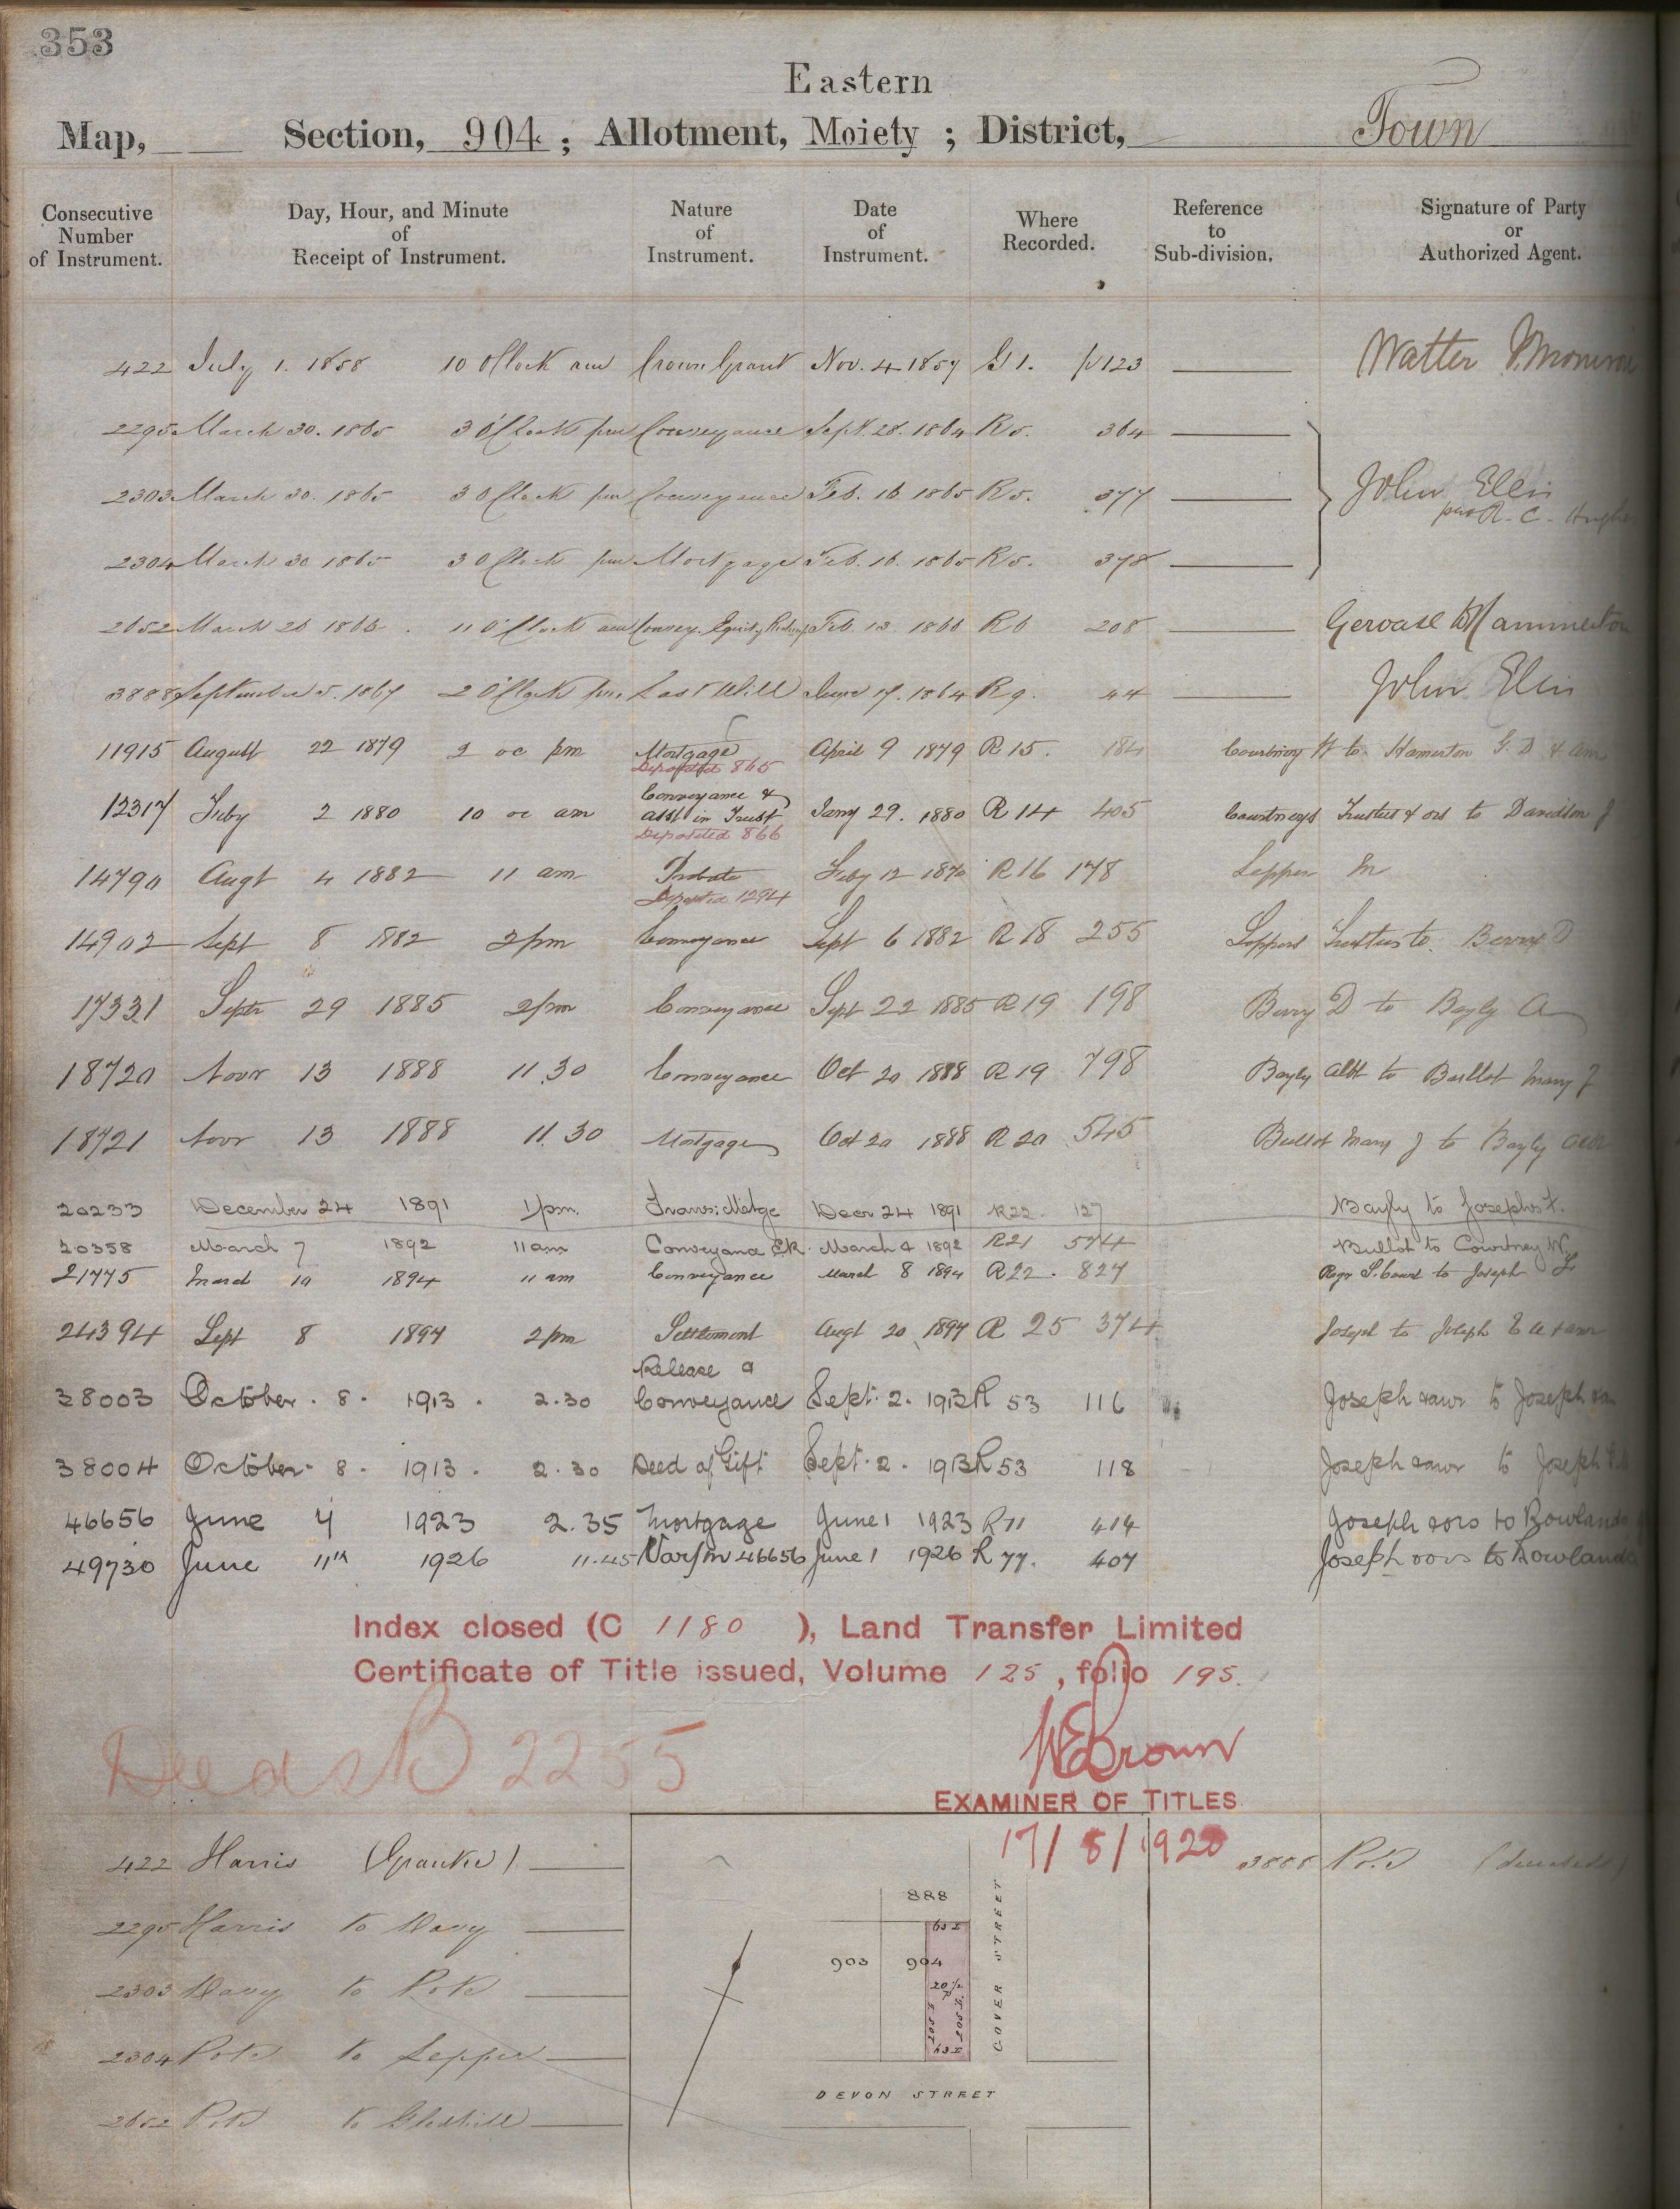 353
Eastern
Map, Section, 904 ; Allotment, Moiety ; District, Town
Consecutive Number of Instrument.
Day, Hour, and Minute of Receipt of Instrument.
Nature of Instrument.
Date of Instrument.
Where Recorded.
Reference to Sub-division.
Signature of Party or Authorized Agent.
422 July 1. 1858 10 O'Clock am Crown Grant Nov. 4 1857 G 1. p 123 Walter
2295 March 30. 1865 3 O'Clock pm Conveyance Sept. 28. 1864 R 5. 364
2303 March 30. 1865 3 O'Clock pm Conveyance Feb. 16 1865 R 5. 377 John Ellis
per R. C. Hughes
2304 March 30 1865 3 O'Clock pm Mortgage Feb. 16. 1865 R 5. 378
2652 March 26 1866 11 O'Clock am Convey. Equity Feb. 13. 1866 R 6 208 Gervase Hammerton
3888 September 5. 1867 2 O'Clock pm. Last Will June 17. 1864 R 9. 44 John Ellis
11915 August 22 1879 2 oc pm Mortgage April 9 1879 R 15. 184 Courtney H to Hamerton G. D & anr
Deposited 865
12317 July 2 1880 10 oc am Conveyance & asst in Trust Jany 29. 1880 R 14 405 Courtneys Trustees & ors to Davidson J
Deposited 866
14790 Augt 4 1882 11 am Probate Feby 12 1870 R 16 178 Lepper M
Deposited 1294
14902 Sept 8 1882 2 pm Conveyance Sept 6 1882 R 18 255 Leppers Trustees to Berry D
17331 Septr 29 1885 2 pm Conveyance Sept 22 1885 R 19 198 Berry D to Bayly A
18720 Novr 13 1888 11.30 Conveyance Oct 20 1888 R 19 798 Bayly to Bullot Mary J
18721 Novr 13 1888 11.30 Mortgage Oct 20 1888 R 20 545 Bullot Mary J to Bayly
20233 December 24 1891 1 pm. Trans: Mtge Decr 24 1891 R22. 127 Bayly to Joseph
20358 March 7 1892 11 am Conveyance E.R. March 4 1892 R21 574 Bullot to Courtney W.
21775 March 10 1894 11 am Conveyance March 8 1894 R22. 827 Regr S. Court to Joseph
24394 Sept 8 1897 2 pm Settlement Augt 20 1897 R 25 374 Joseph to Joseph & anr
38003 October. 8. 1913. 2.30 Release & Conveyance Sept. 2. 1913 R 53 116 Joseph & anr to Joseph
38004 October. 8. 1913. 2.30 Deed of Gift Sept. 2. 1913 R 53 118 Joseph & anr to Joseph
46656 June 4 1923 2.35 Mortgage June 1 1923 R 71 414 Joseph & ors to Rowlands
49730 June 11th 1926 11.45 Var/m 46656 June 1 1926 R 77. 407 Joseph & ors to Rowlands
Index closed (C 1180 ), Land Transfer Limited
Certificate of Title issued, Volume 125, folio 195.
Deeds 2255
WE Brown
EXAMINER OF TITLES
17/8/1928
422 Harris (Grantee)
3888 Pote (deceased)
2295 Harris to Davy
2303 Davy to Pote
2304 Pote to Lepper
2652 Pote to Gledhill
888
903
904
GOVER STREET
DEVON STREET